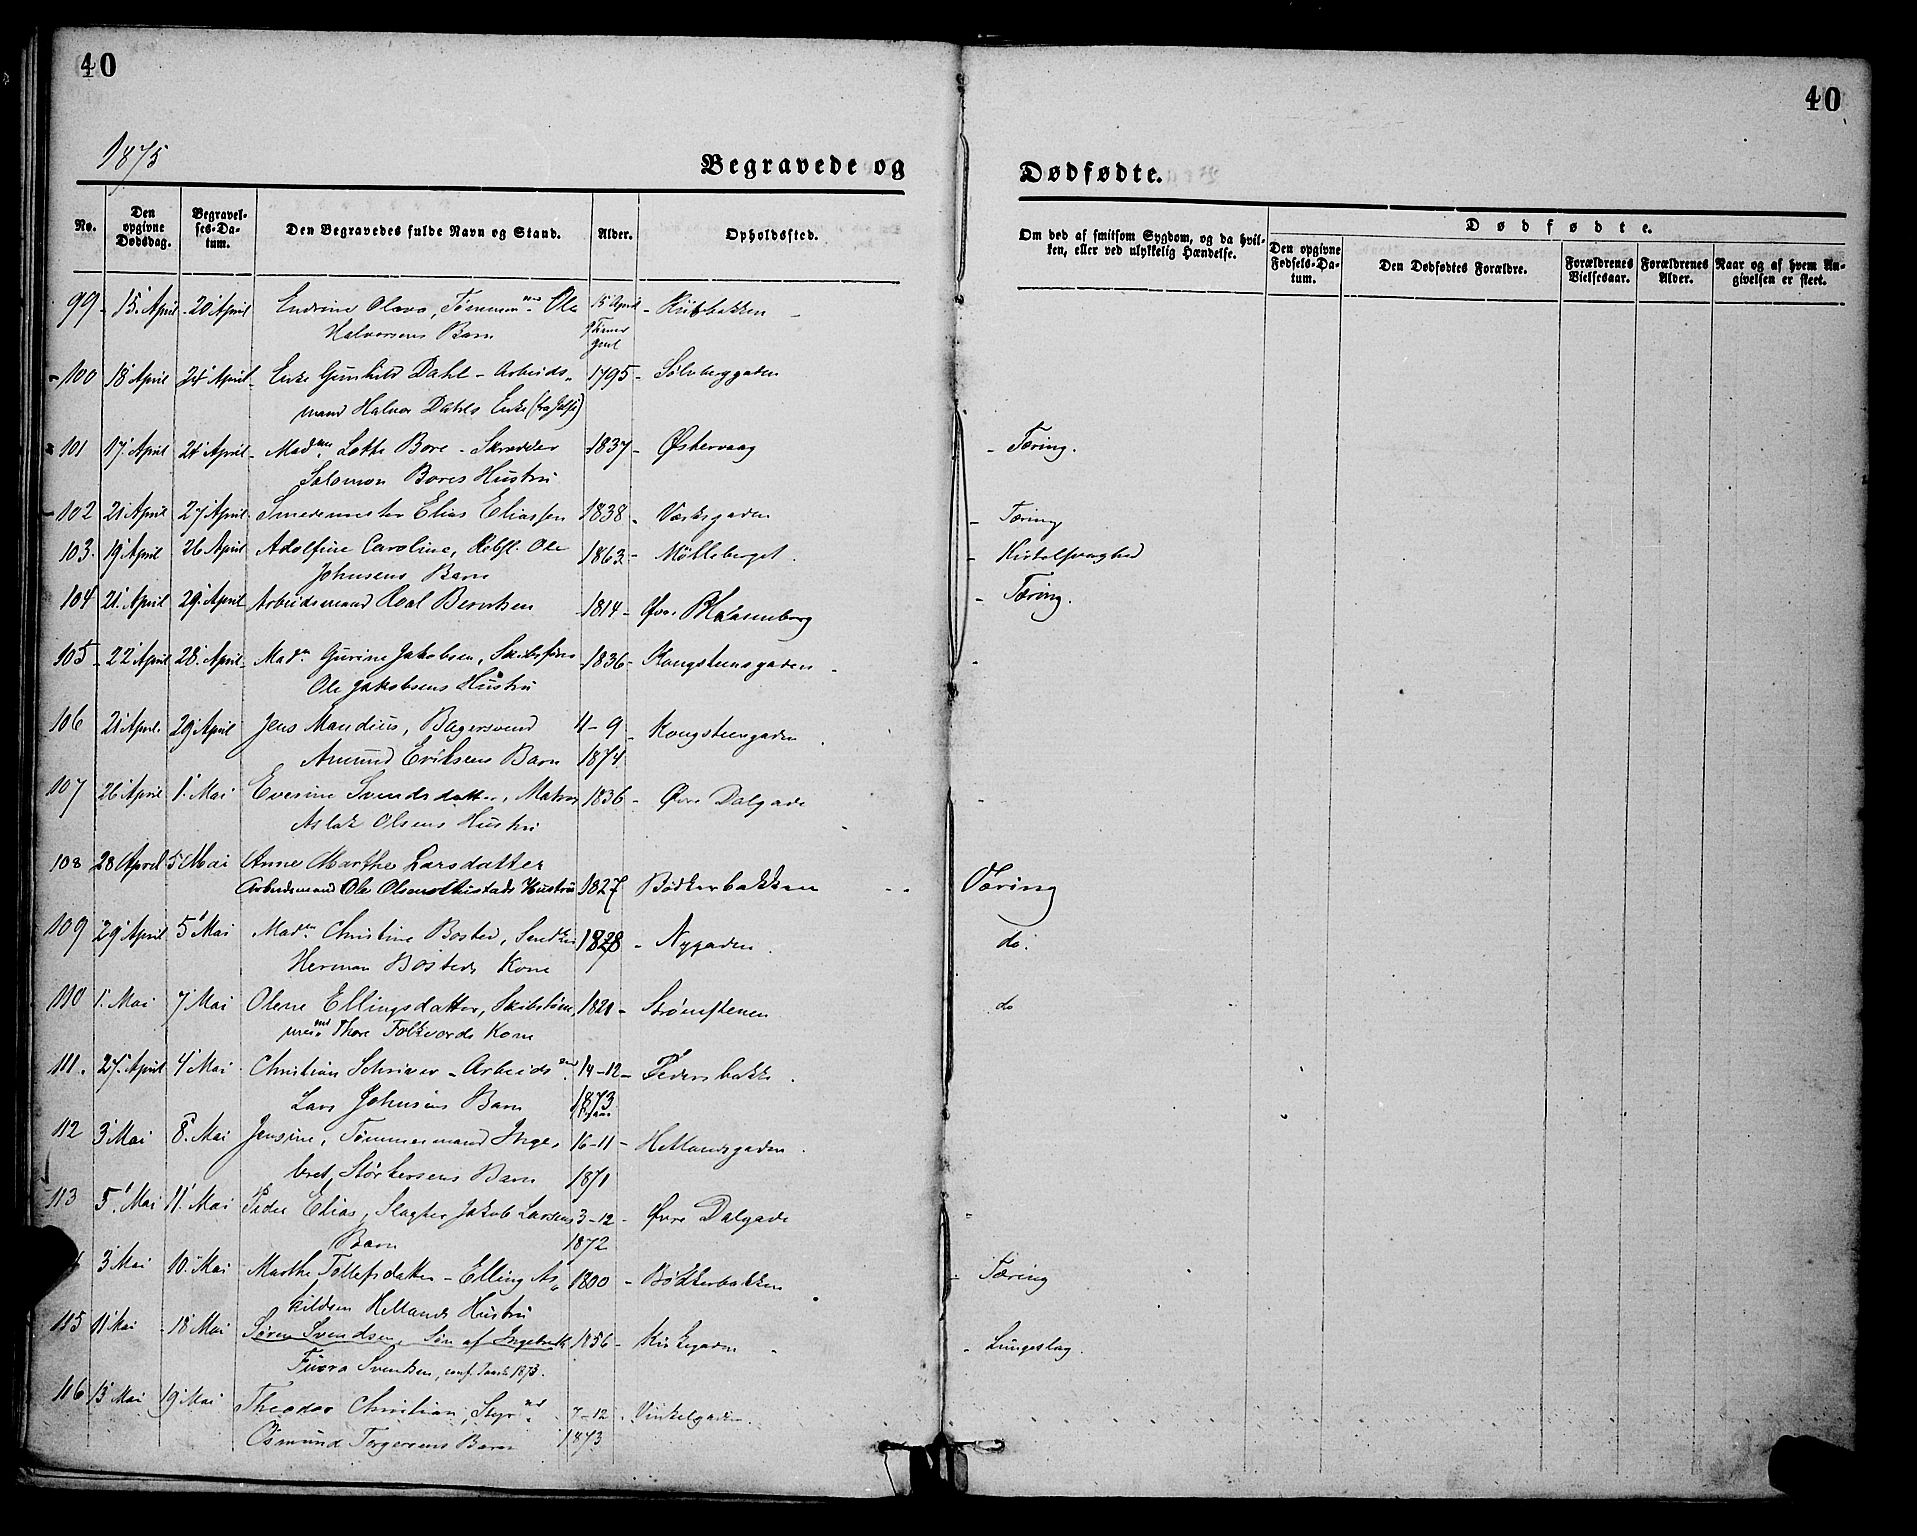 40
40
1875
Begravede og
Dødfødte.
No.
Den opgivne Dødsdag.
Begravelses-Datum.
Den Begravedes fulde Navn og Stand.
Alder.
Opholdssted.
Om død af smitsom Sygdom, og da hvilken, eller ved ulykkelig Hændelse.
Dødfødte.
Den opgivne Fødsels-Datum.
Den Dødfødtes Forældre.
Forældrenes Vielsesaar.
Forældrenes Alder.
Naar og af hvem Angivelsen er skeet.
99 - 15 April - 20 April Endrine Olava, Tømmermd. Ole 15 April
Halvorsens Barn
100 18 April 24 April - Enke Gunhild Dahl - Arbeids- 1795 - Sølvberggaden
mand Halvor Dahls Enke
101 17 April 21 April - Madme Lotte Bore - Skrædder 1837 - Østervaag - Tæring.
Salomon Bores Hustru
102 21 April 27 April - Smedemester Elias Eliassen 1838 - Værksgaden - Tæring
103. 19 April 26 April Adolfine Caroline, Rebsl. Ole 1863 - Mølleberget. - Kirtelsvaghed
Johnsens Barn
104 21 April 29 April Arbeidsmand Roal Berntsen 1814 - Øvre Blaasenborg - Tæring.
105 - 22 April 28 April - Madm Gurine Jakobsen, Skibsfører 1836 - Kongsteensgaden
Ole Jakobsens Hustru
106 21 April. 29 April Jens Mandius, Bagersvend 4-9 - Kongsteengaden
Amund Eriksens Barn 1874
107 26 April 1 Mai Evesine Svendsdatter, Matros 1836 - Øvre Dalgade
Aslak Olsens Hustru
108 28 April 5 Mai Anne Marthe Larsdatter
Arbeidsmand Ole Olsen Austads Hustru 1827 Bødkerbakken Tæring
109 29 April 5 Mai Madm Christine Bosted, Snedker 1828 - Nygaden. do.
Herman Bosteds Kone
110 1 Mai 7 Mai Olene Ellingsdatter, Skibstøm- 1821 - Strømstenen do
mermd Thore Folkvords Kone
111. 27 April 4 Mai Christian Schriver - Arbeidsmd 14-12 - Pedersbakke.
Lars Johnsens Barn 1873
112 3 Mai 8 Mai Jensine, Tømmermand Inge- 16-11 - Hetlandsgaden.
bret Størkersens Barn 1871
113 5 Mai 11 Mai Peder Elias, Slagter Jakob Larsens 3-12 - Øvre Dalgade
Barn 1872
3 Mai 10 Mai Marthe Tollefsdatter - Elling As- 1800 - Bødkerbakken - Tæring
kildsen Hetlands Hustru
115 11 Mai 18 Mai Søren Svendsen, Søn af Ingebreth 1856 - Kirkegaden - Lungeslag.
Svendsen, conf. 1873.
116 13 Mai 19 Mai Theodor Christian, Styrmd 7-12 - Vinkelgaden.
Osmund Torgersens Barn 1873